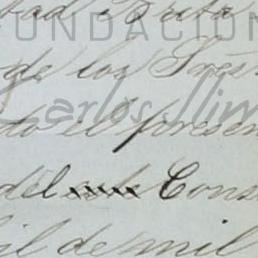 FUNDACIÓN
de los Sres
Carlos Slim
to el presen
del Cons
il de mil